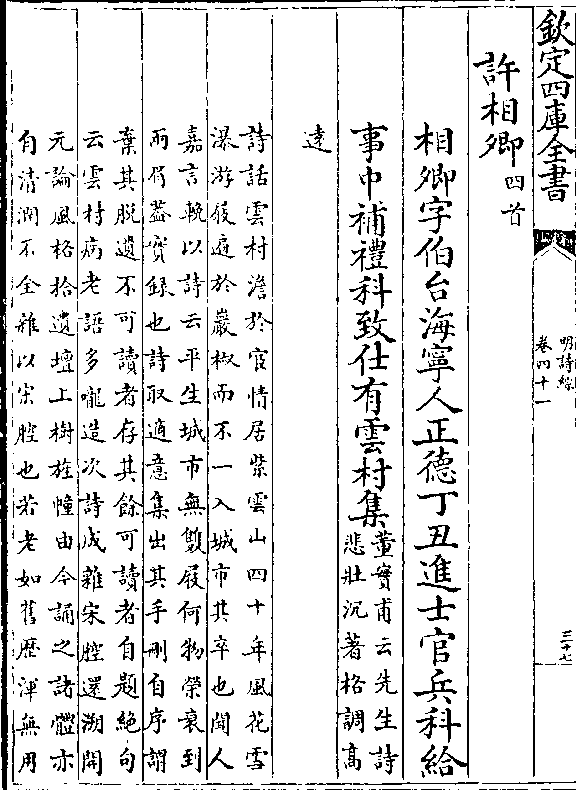 欽定四庫全書
明詩綜
卷四十一
三十七
許相卿四首
相卿字伯台海寧人正德丁丑進士官兵科給
事中補禮科致仕有雲村集董實甫云先生詩
悲壯沉著格調高
遠
詩話雲村澹於宦情居紫雲山四十年風花雪
瀑游屐遍於巖椒而不一入城市其卒也聞人
嘉言輓以詩云平生城市無雙屐何物榮哀到
兩
蓋實錄也詩取適意集出其手刪自序謂
棄其脫遺不可讀者存其餘可讀者自題絶句
云雲村病老語多嚨造次詩成雜宋腔還溯開
元論風格拾遺壇上樹旌幢由今誦之諸體亦
有清潤不全雜以宋腔也若老如舊歴渾無用